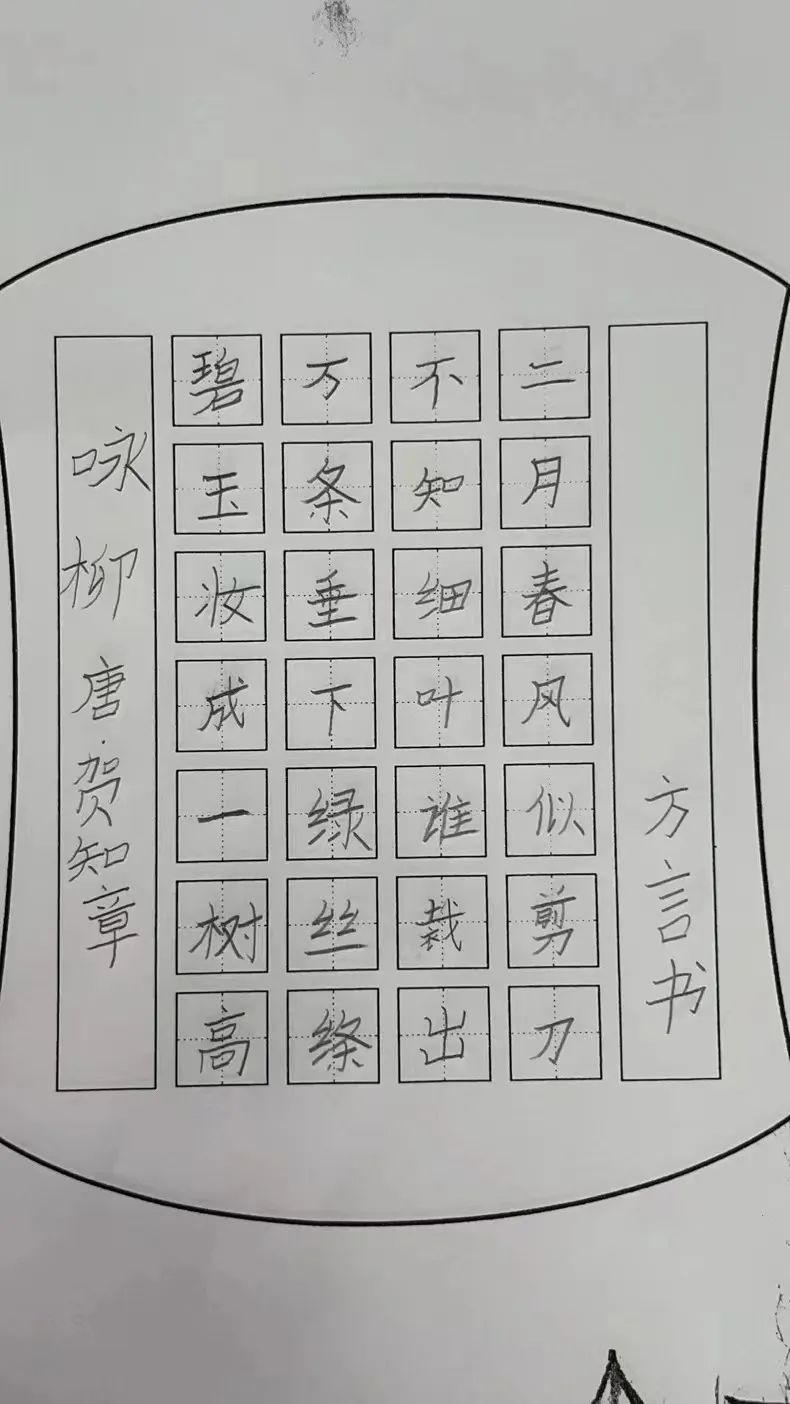 咏柳 唐·贺知章
碧玉妆成一树高
万条垂下绿丝绦
不知细叶谁裁出
二月春风似剪刀
方言书